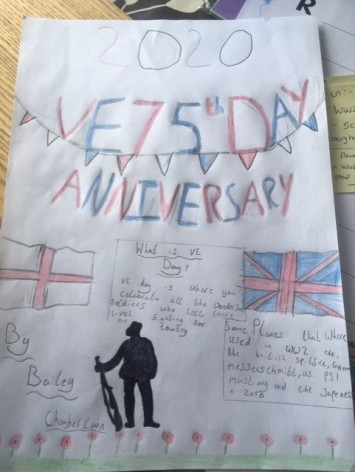 2020
VE 75th DAY
ANNIVERSARY
What is VE
Day?
VE day is where you
celebrate all the
soldiers who lost there
lives fighting for
By
Bailey
Some Planes that where
used in WW2 are
the british
messerschmitt, us P51
mustang and the Japenese
zero